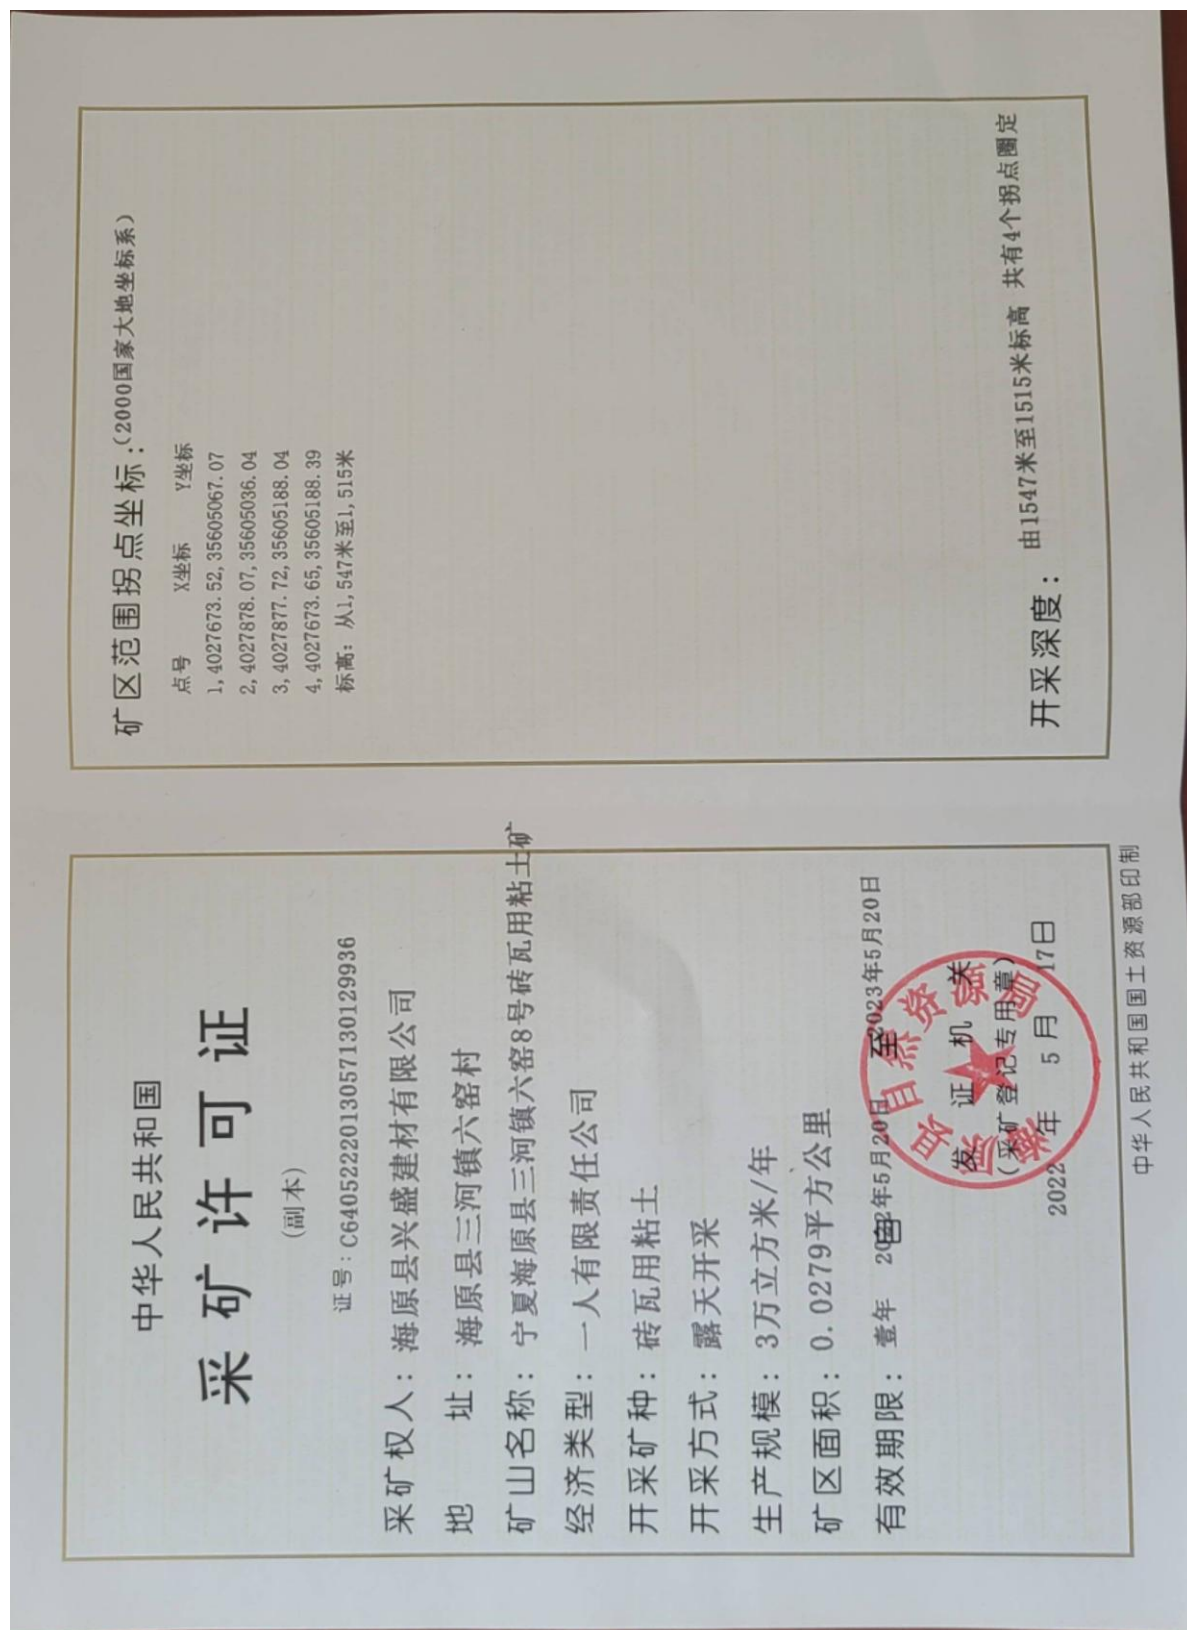 中华人民共和国
采矿许可证
(副本)
证号:C6405222013057130129936
采矿权人:海原县兴盛建材有限公司
地 址:海原县三河镇六窑村
矿山名称:宁夏海原县三河镇六窑8号砖瓦用粘土矿
经济类型:一人有限责任公司
开采矿种:砖瓦用粘土
开采方式:露天开采
生产规模:3万立方米/年
矿区面积:0.0279平方公里
有效期限:壹年 自2022年5月20日至2023年5月20日
发证机关
(采矿登记专用章)
2022年5月17日
海原县自然资源局
中华人民共和国国土资源部印制
矿区范围拐点坐标:(2000国家大地坐标系)
点号 X坐标 Y坐标
1,4027673.52,35605067.07
2,4027878.07,35605036.04
3,4027877.72,35605188.04
4,4027673.65,35605188.39
标高:从1,547米至1,515米
开采深度:由1547米至1515米标高 共有4个拐点圈定